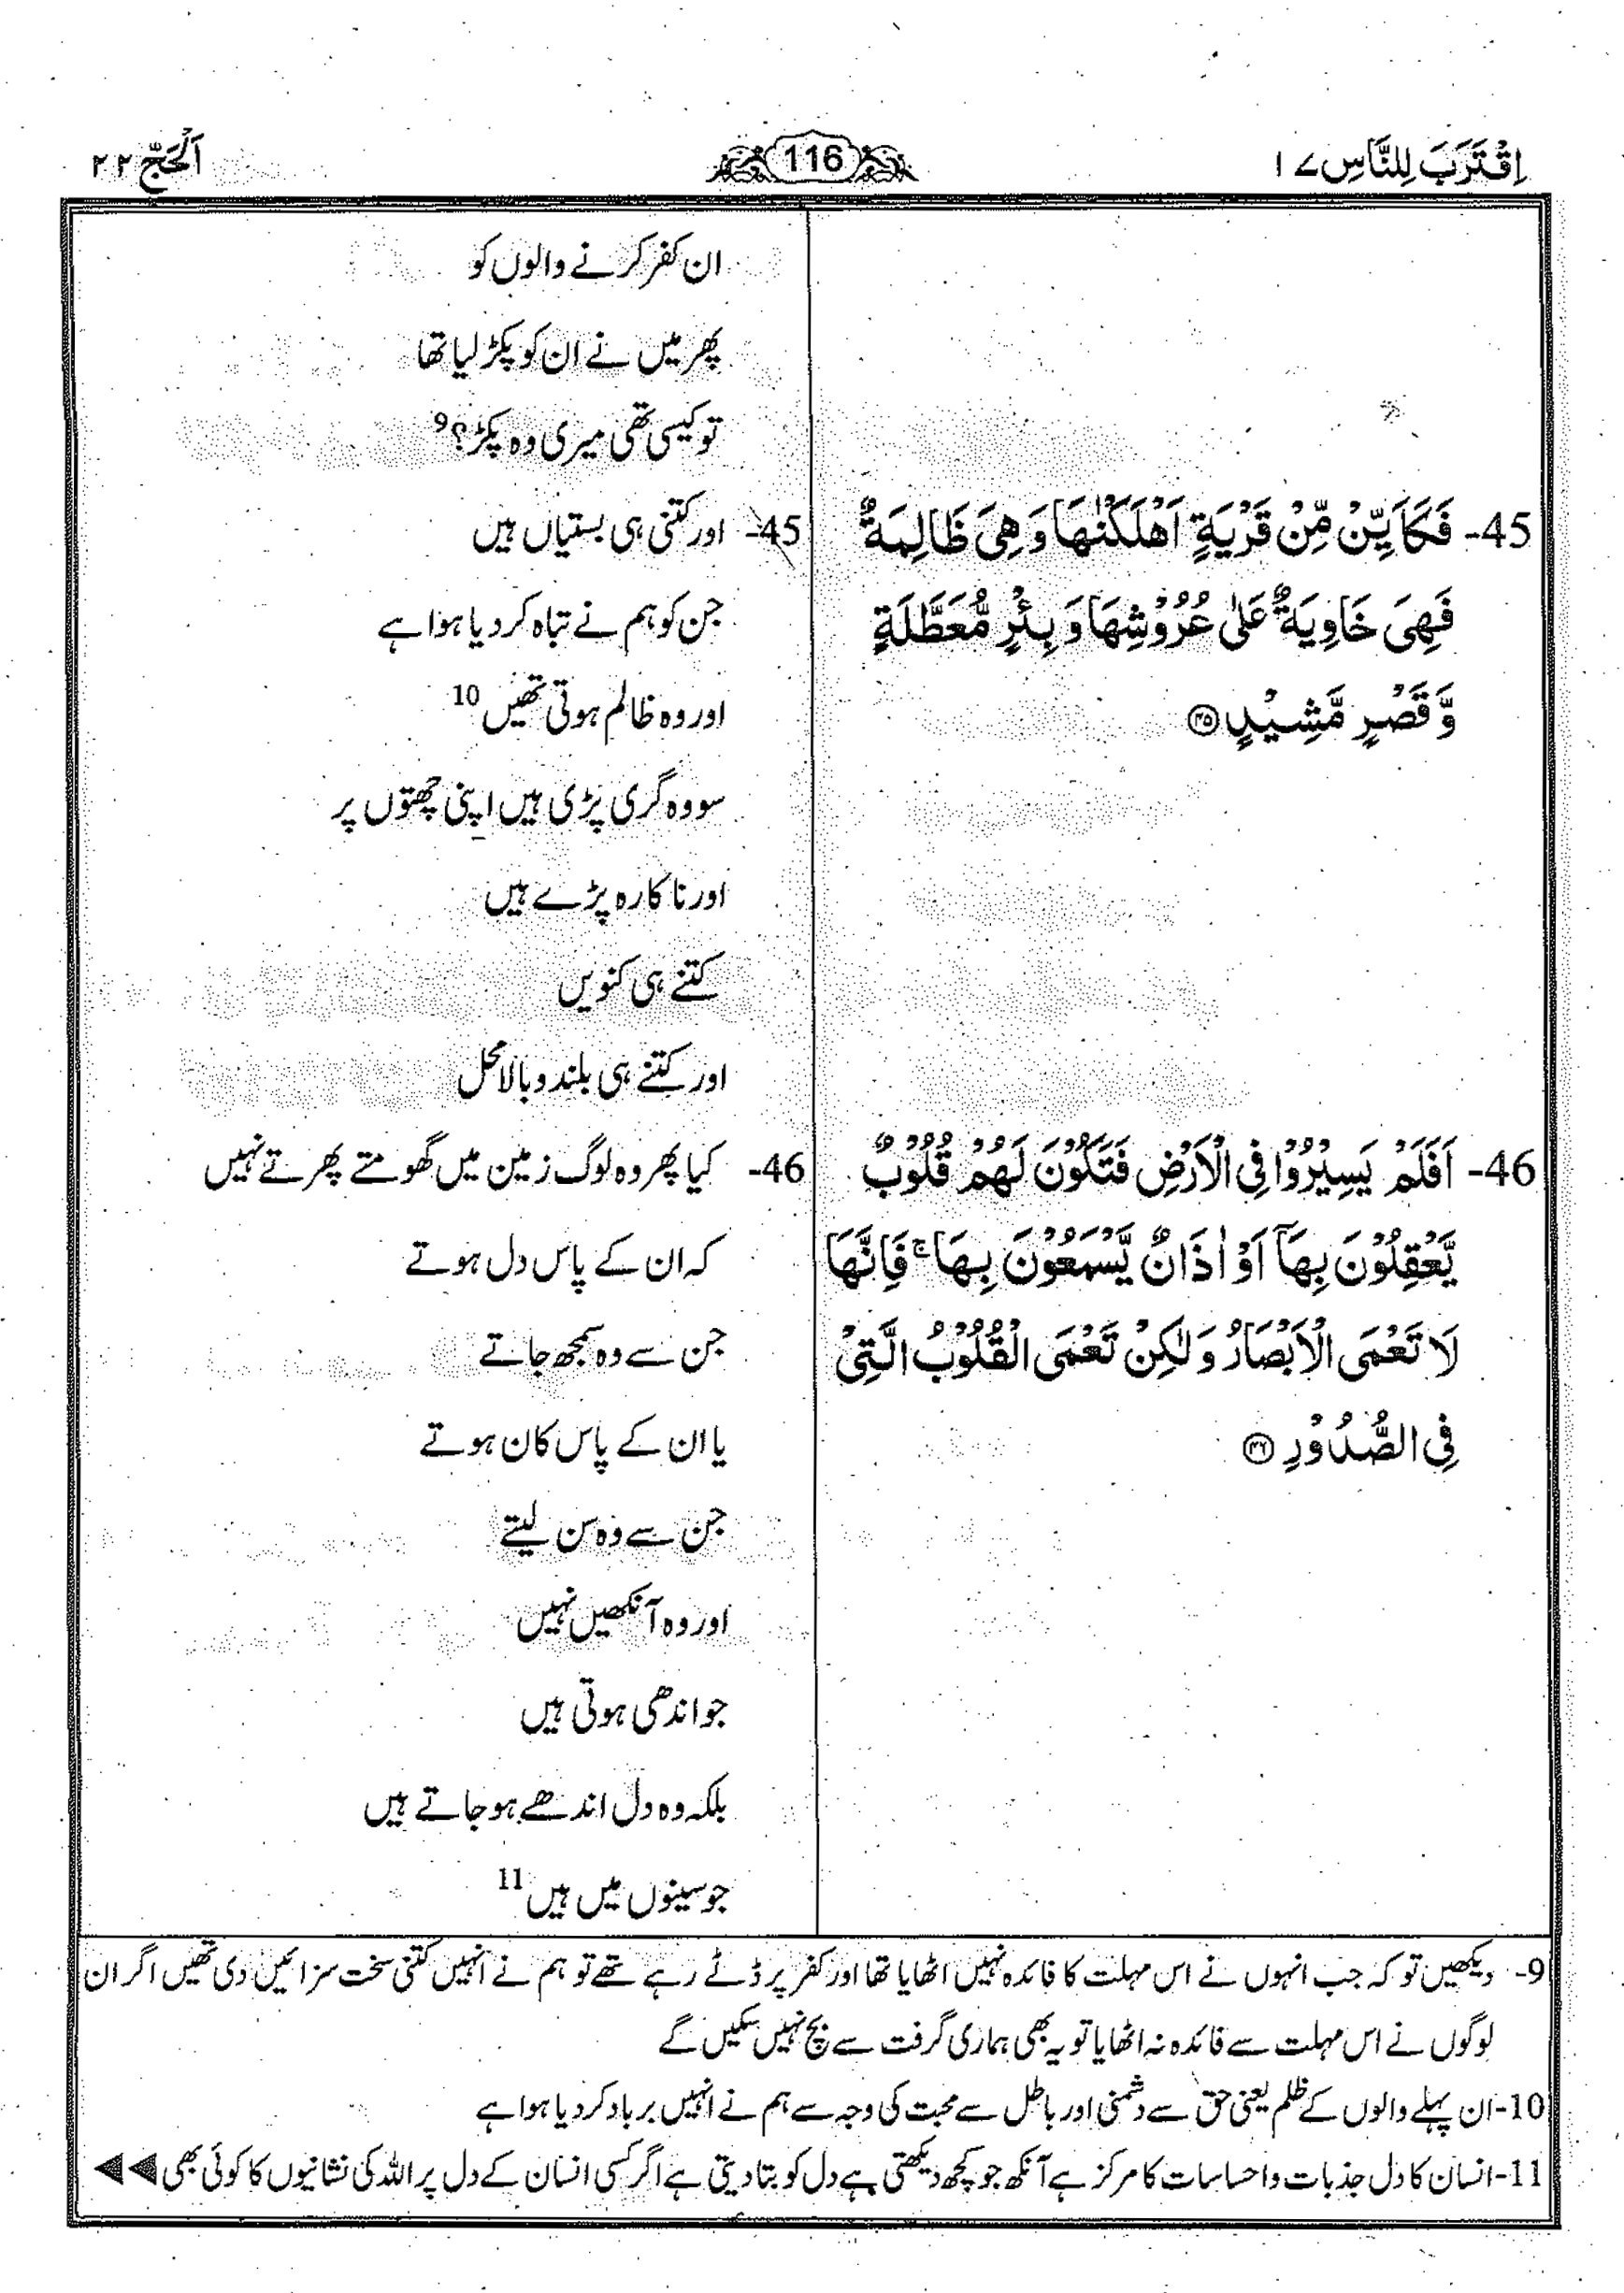 اِقْتَرَبَ لِلنَّاسِ ۱۷
116
اَلْحَجّ ۲۲
ان کفر کرنے والوں کو
پھر میں نے ان کو پکڑ لیا تھا
تو کیسی تھی میری وہ پکڑ؟ 9
45- فَكَاَيِّنْ مِّنْ قَرْيَةٍ اَهْلَكْنٰهَا وَ هِيَ ظَالِمَةٌ
فَهِيَ خَاوِيَةٌ عَلٰى عُرُوْشِهَا وَ بِئْرٍ مُّعَطَّلَةٍ
وَّ قَصْرٍ مَّشِيْدٍ ۝۴۵
45- اور کتنی ہی بستیاں ہیں
جن کو ہم نے تباہ کر دیا ہوا ہے
اور وہ ظالم ہوتی تھیں 10
سو وہ گری پڑی ہیں اپنی چھتوں پر
اور ناکارہ پڑے ہیں
کتنے ہی کنویں
اور کتنے ہی بلند و بالا محل
46- اَفَلَمْ يَسِيْرُوْا فِي الْاَرْضِ فَتَكُوْنَ لَهُمْ قُلُوْبٌ
يَّعْقِلُوْنَ بِهَآ اَوْ اٰذَانٌ يَّسْمَعُوْنَ بِهَا ۚ فَاِنَّهَا
لَا تَعْمَى الْاَبْصَارُ وَ لٰكِنْ تَعْمَى الْقُلُوْبُ الَّتِيْ
فِي الصُّدُوْرِ ۝۴۶
46- کیا پھر وہ لوگ زمین میں گھومتے پھرتے نہیں
کہ ان کے پاس دل ہوتے
جن سے وہ سمجھ جاتے
یا ان کے پاس کان ہوتے
جن سے وہ سن لیتے
اور وہ آنکھیں نہیں
جو اندھی ہوتی ہیں
بلکہ وہ دل اندھے ہو جاتے ہیں
جو سینوں میں ہیں 11
9- دیکھیں تو کہ جب انہوں نے اس مہلت کا فائدہ نہیں اٹھایا تھا اور کفر پر ڈٹے رہے تھے تو ہم نے انہیں کتنی سخت سزائیں دی تھیں اگر ان
لوگوں نے اس مہلت سے فائدہ نہ اٹھایا تو یہ بھی ہماری گرفت سے بچ نہیں سکیں گے
10- ان پہلے والوں کے ظلم یعنی حق سے دشمنی اور باطل سے محبت کی وجہ سے ہم نے انہیں برباد کر دیا ہوا ہے
11- انسان کا دل جذبات و احساسات کا مرکز ہے آنکھ جو کچھ دیکھتی ہے دل کو بتا دیتی ہے اگر کسی انسان کے دل پر اللہ کی نشانیوں کا کوئی بھی ◀◀